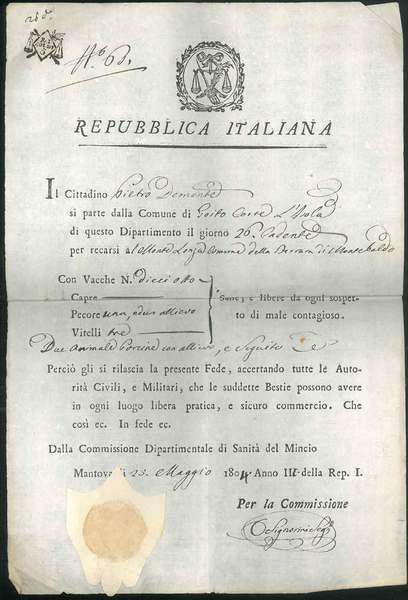 N.° 60.
REPUBBLICA ITALIANA
Il Cittadino Pietro Demonte
si parte dalla Comune di Goito Corte L'Isola
di questo Dipartimento il giorno 26. Cadente
per recarsi al Monte Comune della di Montebaldo
Con Vacche N. Dieci otto
Capre
Pecore una, ed un allievo
Vitelli tre
Sane, e libere da ogni sospet-
to di male contagioso.
Due Animali Porcini con allievi, e Seguito
Perciò gli si rilascia la presente Fede, accertando tutte le Auto-
rità Civili, e Militari, che le suddette Bestie possono avere
in ogni luogo libera pratica, e sicuro commercio. Che
così ec. In fede ec.
Dalla Commissione Dipartimentale di Sanità del Mincio
Mantova li 23. Maggio 1804 Anno III della Rep. I.
Per la Commissione